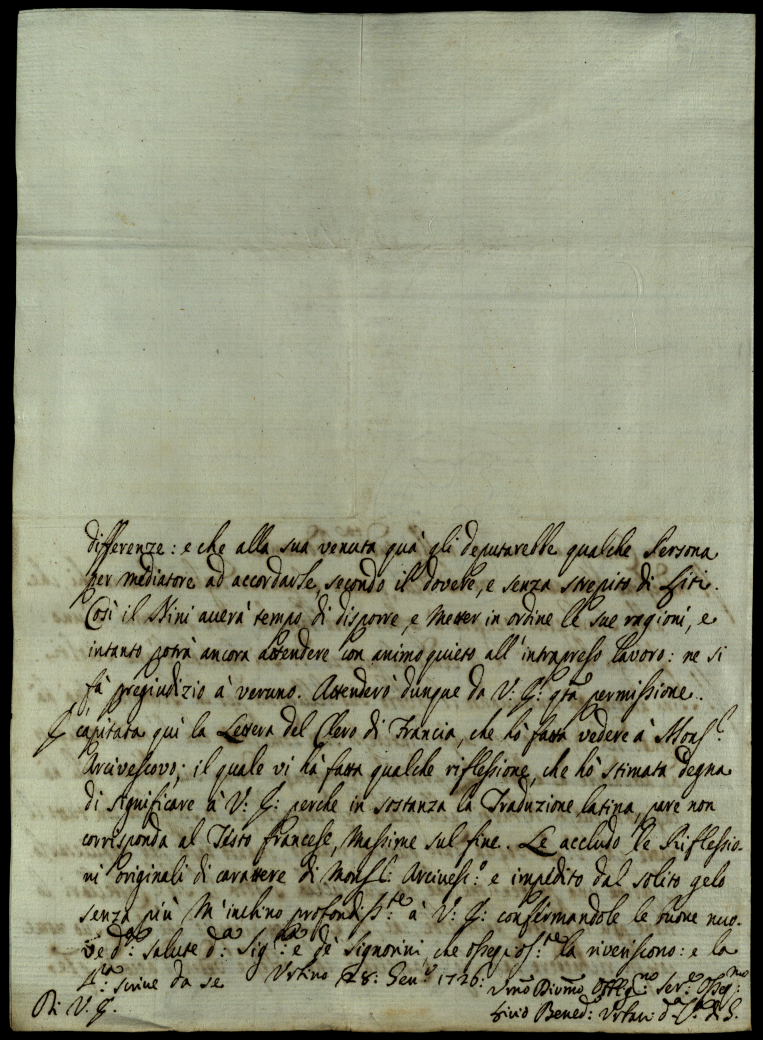 differenze: e che alla sua venuta quà gli deputarebbe qualche Persona
per mediatore ad accordarle, secondo il dovere, e senza strepito di Liti.
Così il Nini averà tempo di disporre, e metter in ordine le sue ragioni, e
intanto potrà ancora attendere con animo quieto all'intrapreso lavoro: ne si
fà pregiudizio à veruno. Attenderò dunque da V: E: qta permissione.
È capitata quì la Lettera del Clero di Francia, che hò fatta vedere à Monsr.
Arcivescovo; il quale vi hà fatta qualche riflessione, che hò stimata degna
di significare à V: E: perche in sostanza la Traduzione latina, pare non
corrisponda al Testo francese, massime sul fine. Le accludo le Riflessio-
ni originali di carattere di Monsr: Arcivesco: e impedito dal solito gelo
senza più m'inchino profondisste à V: E: confermandole le buone nuo-
ve della salute della Sigra e de Signorini, che osseqiosste la riveriscono: e la
Sigra scrive da se Urbino 28: Gen: 1726:
Di V. E.
Umo Divmo Obblgmo Serre Osseqmo
Livio Bened: